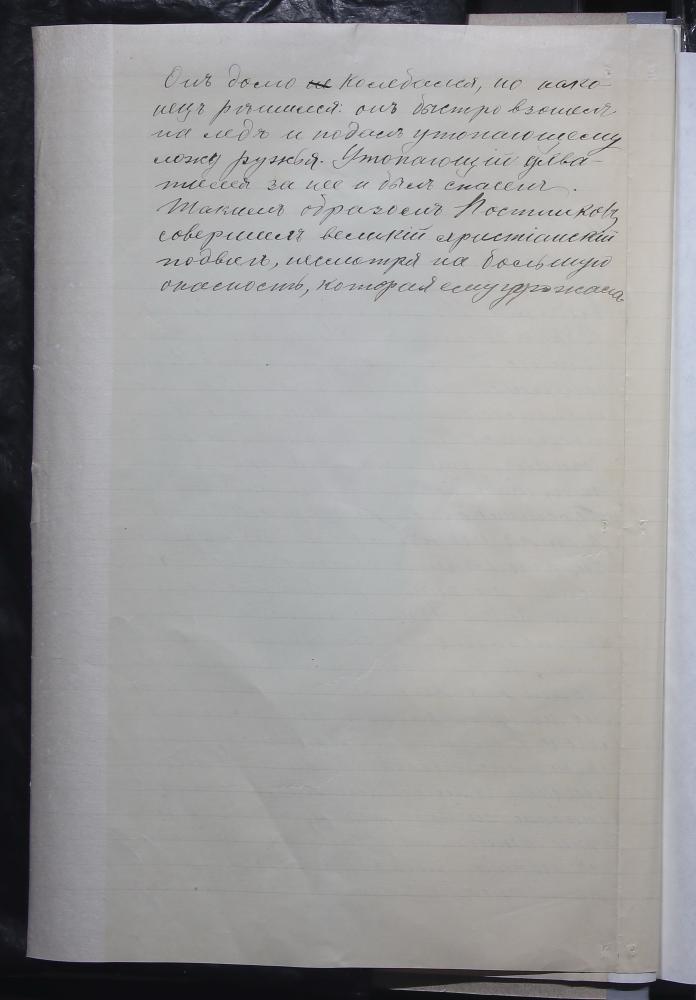 Онъ долго не колебался, но нако-
нецъ рѣшился: онъ быстро взошелъ
на ледъ и подалъ утопающему
ложу ружья. Утопающій ухва-
тился за нее и былъ спасенъ.
Такимъ образомъ Постниковъ
совершилъ великій христіанскій
подвигъ, несмотря на большую
опасность, которая ему угрожала